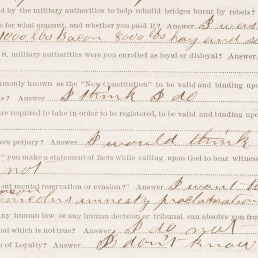 by the military authorities to help rebuild bridges burnt by rebels?
for what amount, and whether you paid it? Answer. I was
1000 lbs Bacon 8000 lbs hay and
S. military authorities were you enrolled as loyal or disloyal? Answer.
monly known as the "New Constitution" to be valid and binding upon
s? Answer I think I do
are required to take in order to be registered, to be valid and binding
ves perjury? Answer I would think
" you make a statement of facts while calling upon God to bear witness
not
out mental reservation or evasion? Answer I want to
amnesty proclamation
ny human law or any human decision or tribunal can absolve you from
hat which is not true? Answer I do not
n of Loyalty? Answer I don't know